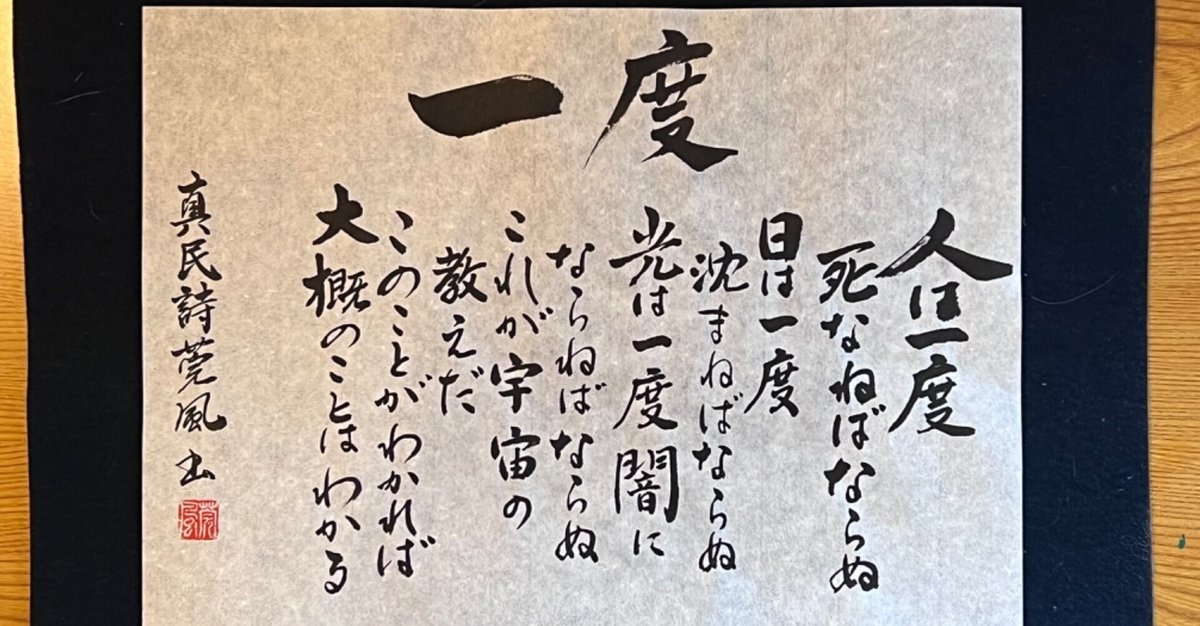 一度
人は一度
死なねばならぬ
日は一度
沈まねばならぬ
光は一度闇に
ならねばならぬ
これが宇宙の
教えだ
このことがわかれば
大概のことはわかる
真民詩莞風書
莞風